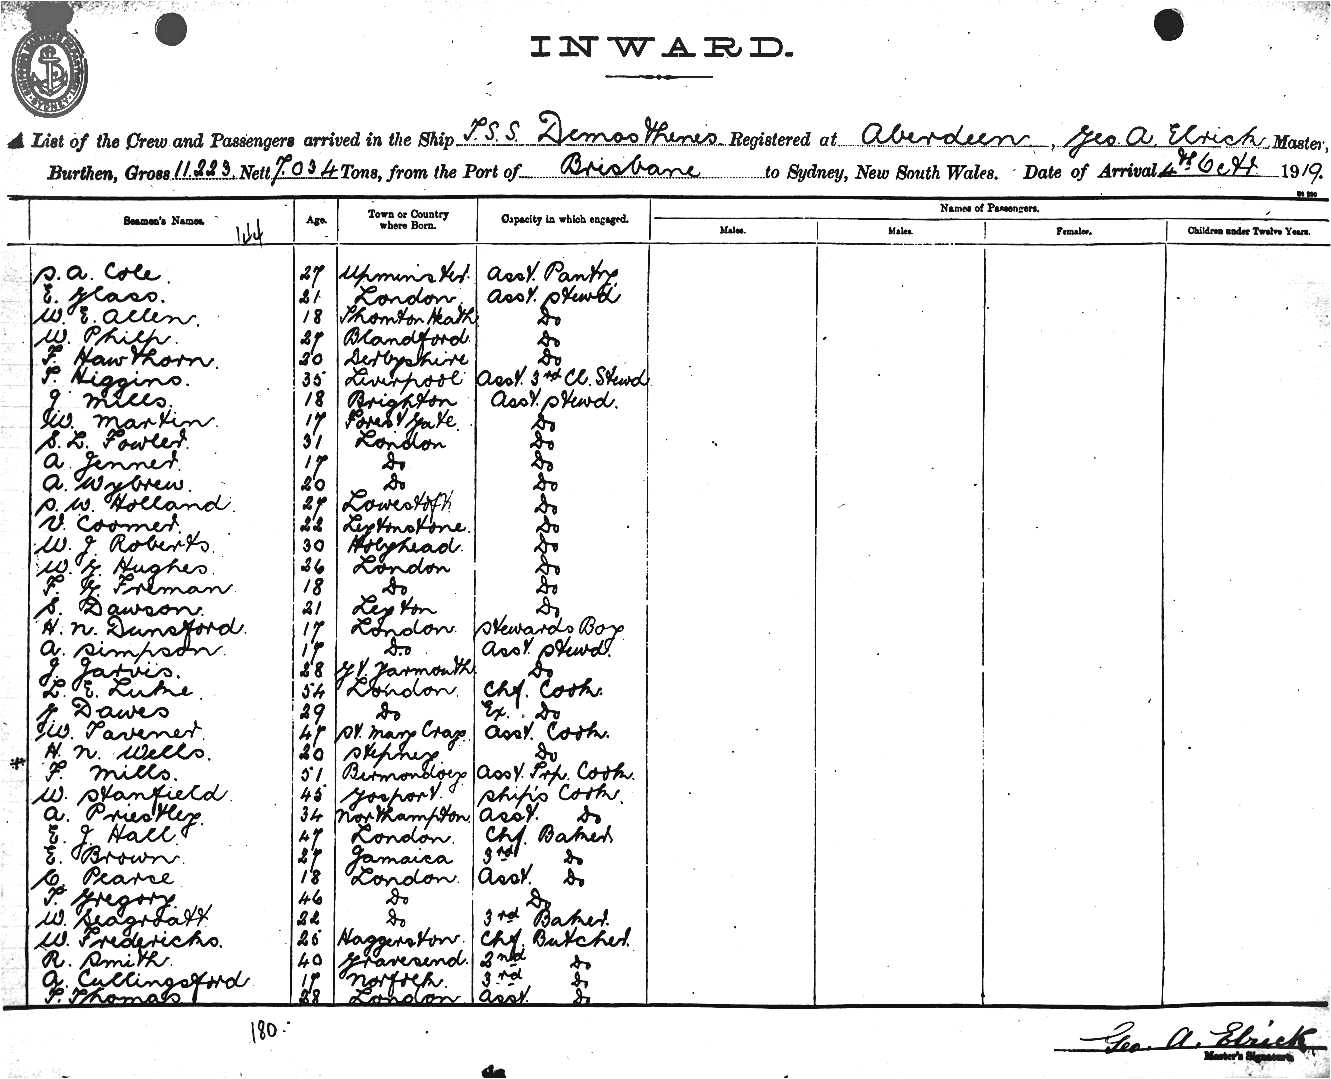 INWARD.
A List of the Crew and Passengers arrived in the Ship T.S.S. Demosthenes Registered at Aberdeen, Geo A. Elrick Master,
Burthen, Gross 11.223. Nett 7.034 Tons, from the Port of Brisbane to Sydney, New South Wales. Date of Arrival 4th Oct 1919.
Seamen's Names. Age. Town or Country where Born. Capacity in which engaged. Names of Passengers.
Males. Males. Females. Children under Twelve Years.
144
S. A. Cole. 27 Upminster. Asst. Pantry.
E. Glass. 21 London. Asst. Stewd
W. E. Allen. 18 Thornton Heath Do
W. Philp. 27 Blandford. Do
F. Hawthorn. 20 Derbyshire Do
T. Higgins. 35 Liverpool Asst. 3rd Cl. Stewd
J. Mills. 18 Brighton Asst. Stewd.
W. Martin. 17 Forest Gate. Do
S. L. Fowler. 31 London Do
A. Jenner. 17 Do Do
A. Wybrew. 20 Do Do
S. W. Holland. 27 Lowestoft Do
V. Coomer. 22 Leytonstone. Do
W. J. Roberts. 30 Holyhead. Do
W. G. Hughes. 26 London Do
F. G. Freman. 18 Do Do
S. Dawson. 21 Leyton Do
H. N. Dunsford. 17 London. Stewards Boy
A. Simpson. 17 Do. Asst. Stewd.
J. Jarvis. 28 Gt. Yarmouth. Do
L. E. Luke. 54 London. Chf. Cook.
G Dawes 29 Do Ex. Do
W. Tavener. 47 St. Mary Cray. Asst. Cook.
H. N. Wells. 20 Stepney Do
F. Mills. 51 Bermondsey Asst. Trp. Cook.
W. Stanfield. 45 Gosport. Ship's Cook.
A. Priestley. 34 Northampton. Asst. Do
E. J Hall 47 London. Chf. Baker
E. Brown. 27 Jamaica 3rd Do
C. Pearse 18 London. Asst. Do
T. Gregory. 46 Do Do
W. Seagroatt 22 Do 3rd Baker.
W. Fredericks. 25 Haggerston. Chf. Butcher.
R. Smith. 40 Gravesend. 2nd Do
A. Cullingsford 17 Norfolk. 3rd Do
T. Thomas 28 London Asst. Do
180.
Geo. A. Elrick
Master's Signature.